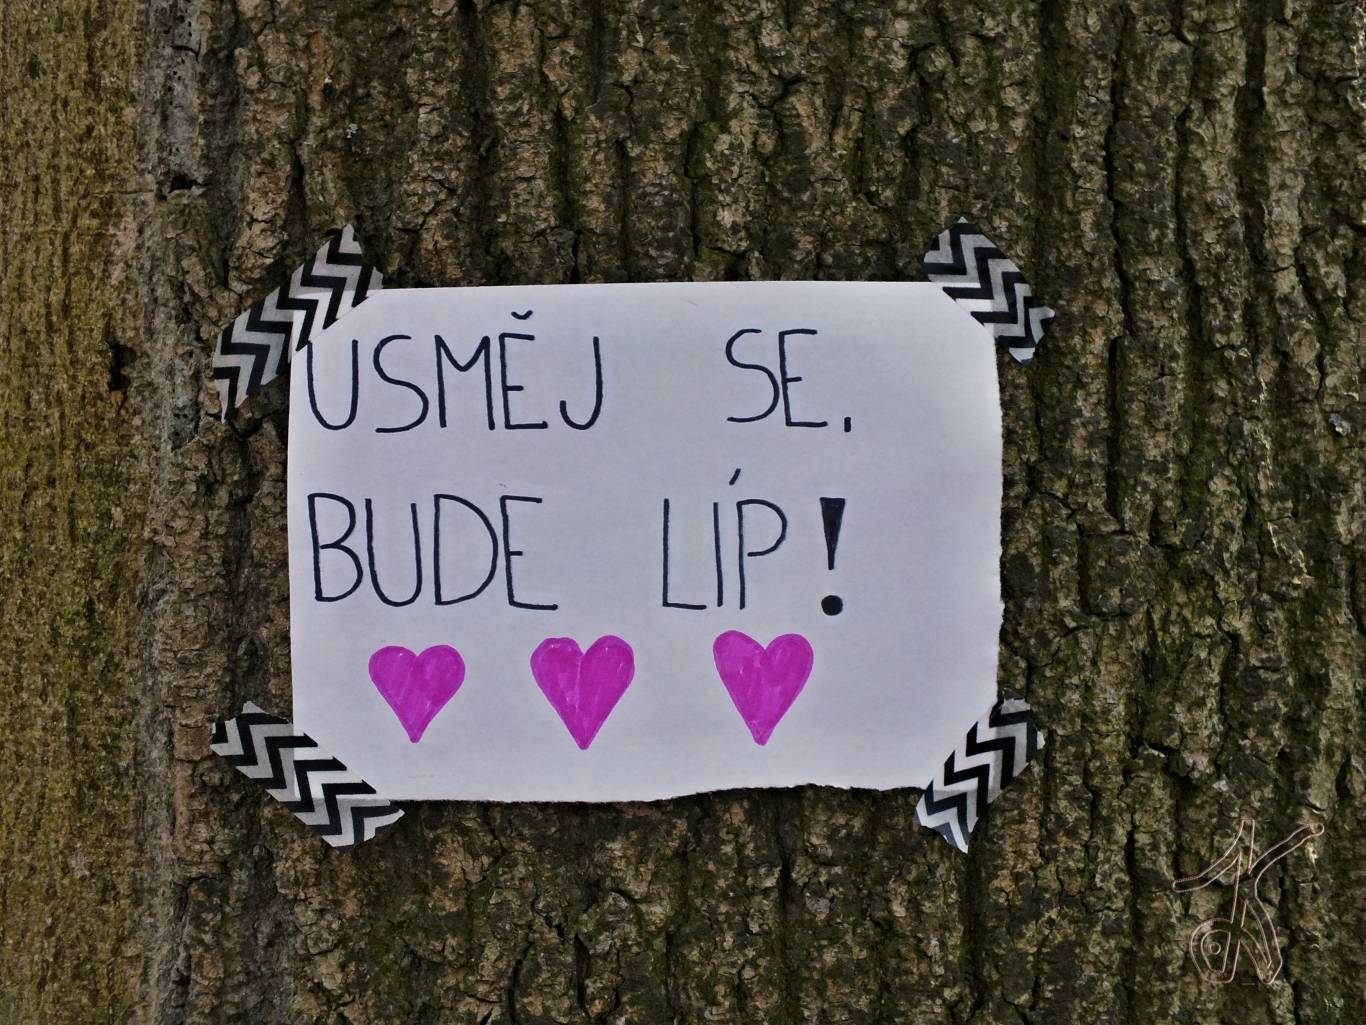 USMĚJ SE.
BUDE LÍP!